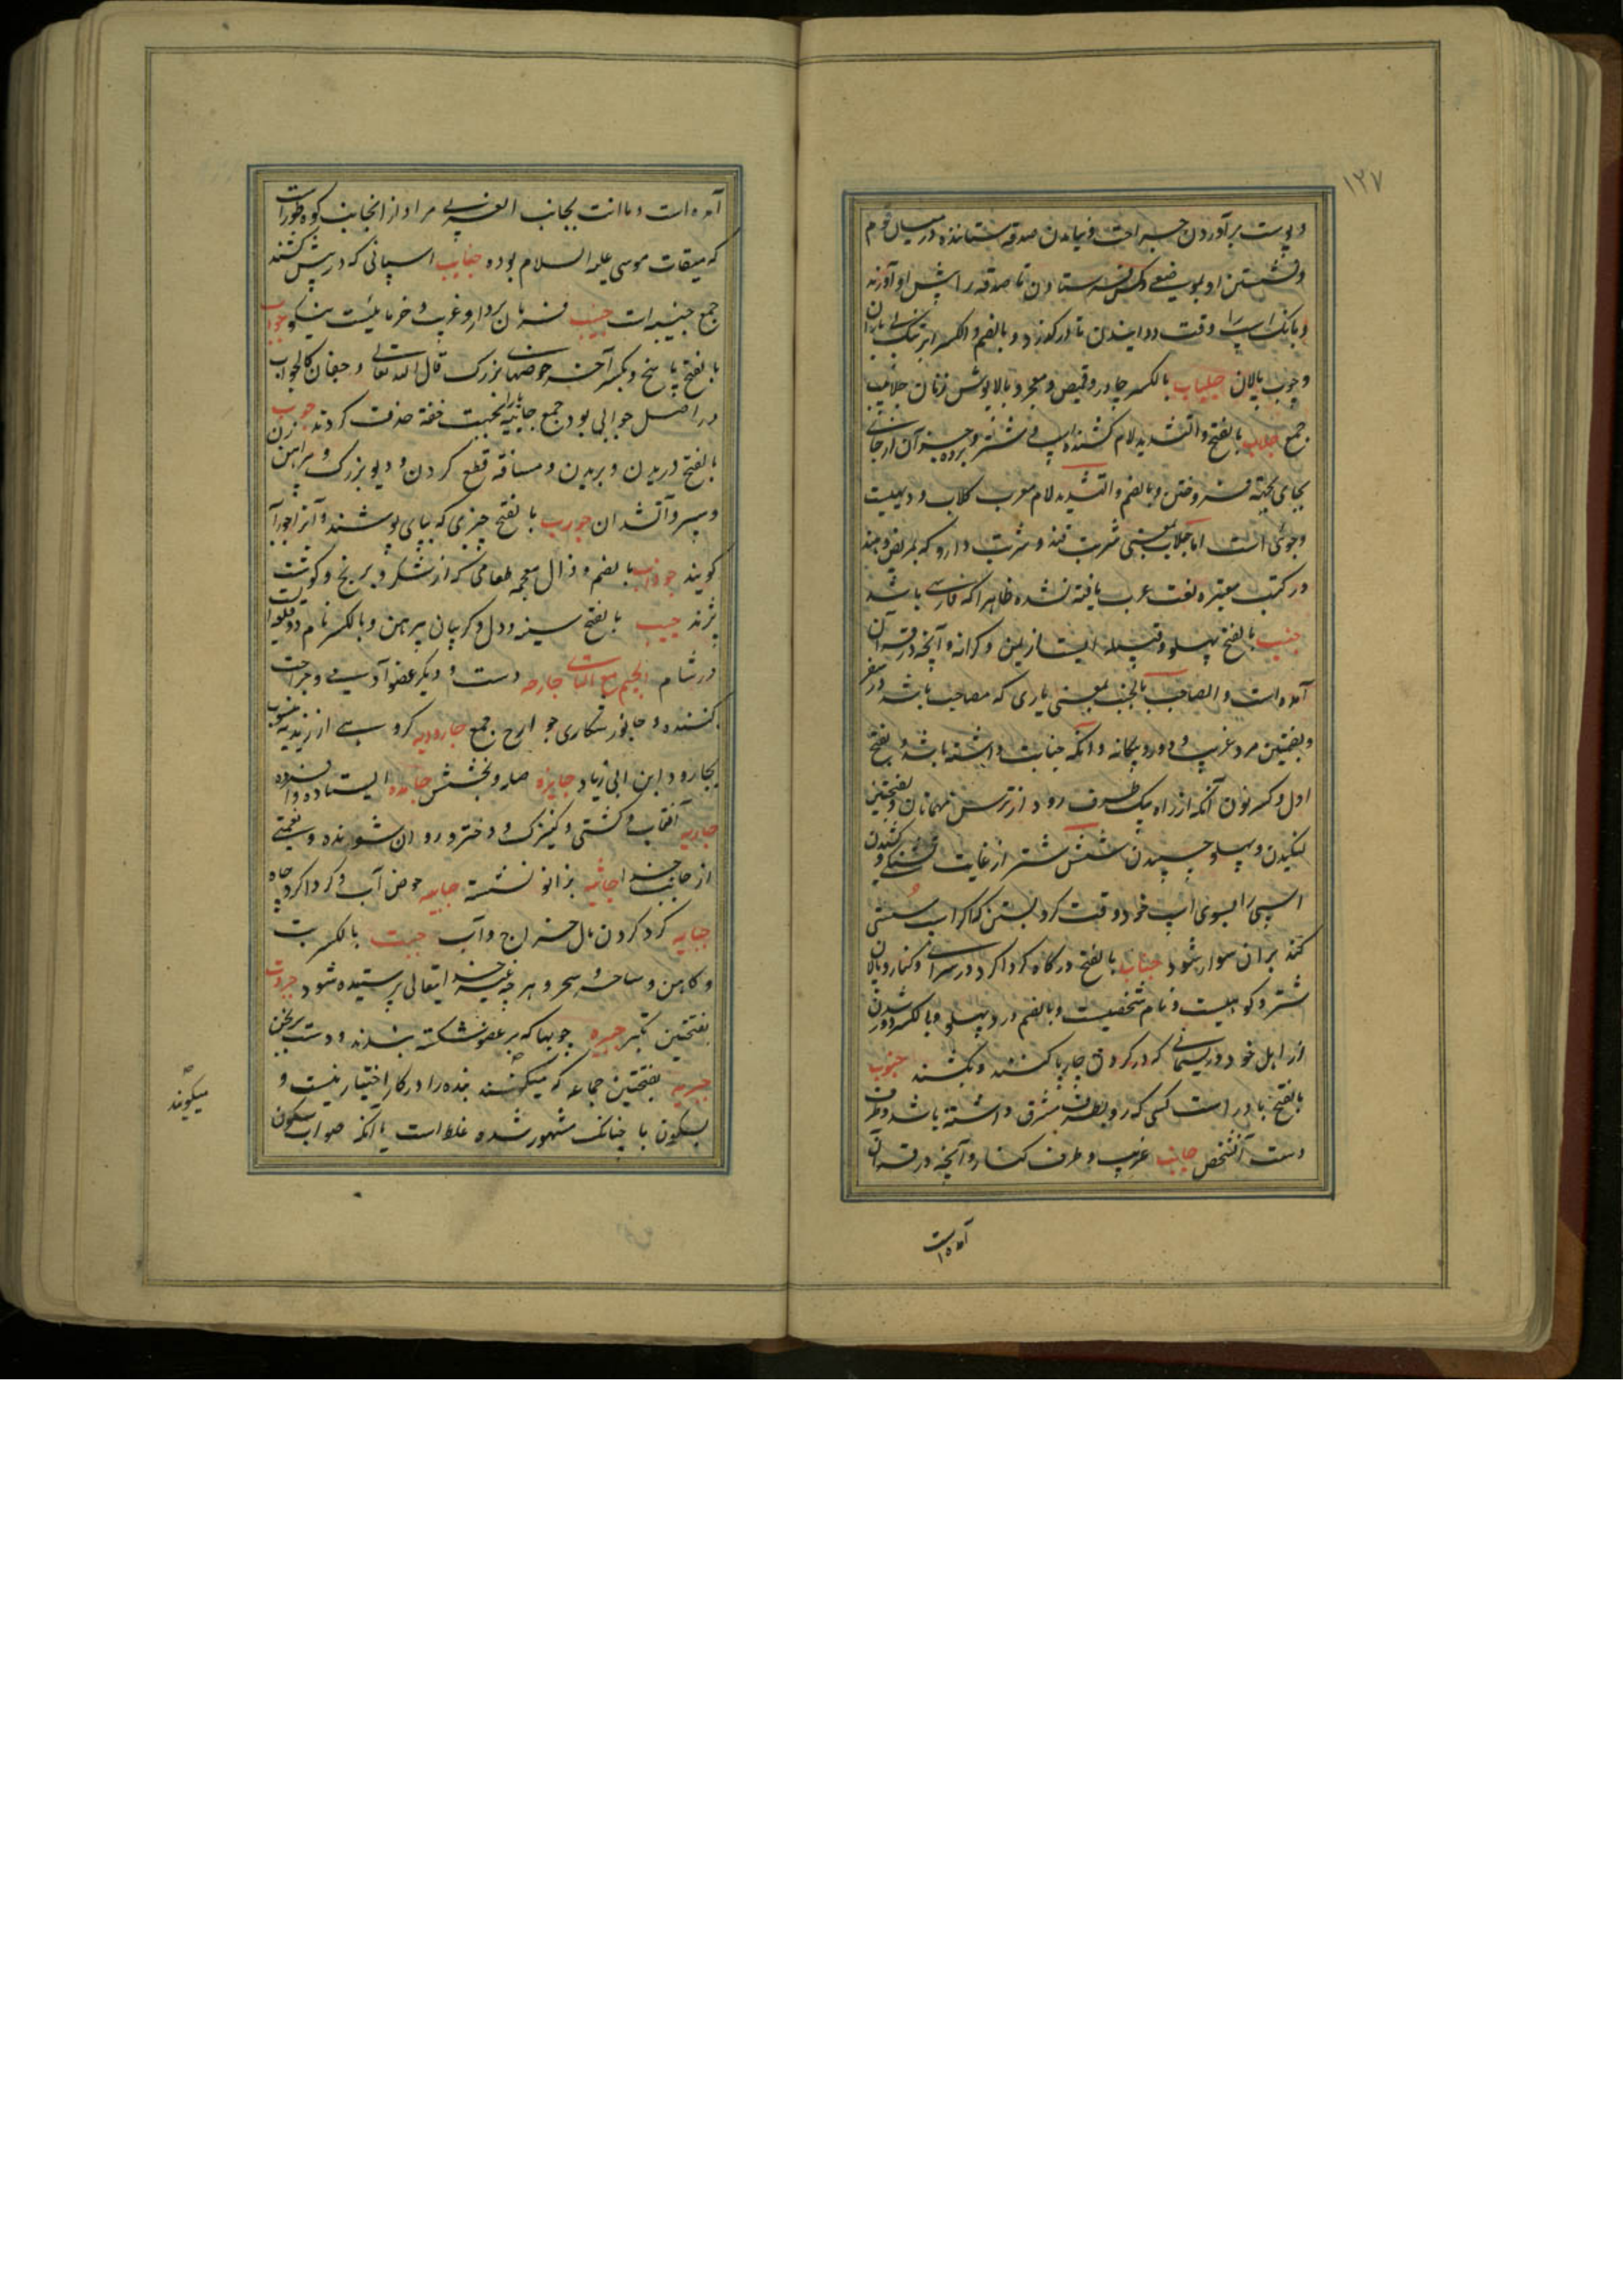 ١٢٧
و پوست برآوردن جراحت و نیامدن صدقه ستاننده در میان قوم
و نشستن او بموضعی و کس فرستادن تا صدقه را پیش او آورند
و بانک اسپ را وقت دوانیدن تا در گذرد و بالضم و الکسر ابر تنک بی باران
و چوب پالان جلباب بالکسر چادر و قمیص و معجر و بالاپوش زنان جلابیب
جمع جلاب بالفتح و التشدید لام کشنده اسپ و شتر و برده و جز آن از جائی
بجای بجهة فروختن و بالضم و التشدید لام معرب کلاب و دیهیست
و جوئی است اما جلاب بمعنی شربت قند و شربت دارو که بمریض دهند
در کتب معتبره لغت عرب یافته نشده ظاهرا که فارسی باشد
جنب بالفتح پهلو و قبیله ایست از یمن و کرانه و آنچه در قرآن
آمده است و الصاحب بالجنب بمعنی یاری که مصاحب باشد در سفر
و بضمتین مرد غریب و دور و بیکانه و آنکه جنابت داشته باشد و بفتح
اول و کسر نون آنکه از راه یک طرف رود از ترس مهمانان و بفتحتین
لنکیدن و پهلو چسپیدن شش شتر از غایت تشنکی و کشیدن
اسپی را بسوی اسپ خود وقت کرو بستن که اگر اسپ سستی
کند بر آن سوار شود جناب بالفتح درگاه و گرداگرد سرای و کنار و پالان
شتر و کوهیست و نام شخصیت و بالضم درد پهلو و بالکسر دور شدن
از اهل خود و ریسمانی که در کردن چارپا کنند و بکشند جنوب
بالفتح باد راست کسی که رو بطرف مشرق داشته باشد و طرف
دست آنشخص جانب غریب و طرف کنار و آنچه در قرآن
آمده است
آمده است و ما کنت بجانب الغربی مراد از انجانب کوه طور است
که میقات موسی علیه السلام بوده جنایب اسپانی که در پیش کشند
جمع جنیبه است جنیب فرمان بردار و غریب و خرمائیست نیکو جواب
بالفتح پاسخ و بکسر آخر حوضهای بزرک قال الله تعالی و جفان کالجواب
در اصل جوابی بود جمع جابیه را بجهت خفة حذف کردند جوب
بالفتح دریدن و بریدن و مسافة قطع کردن و دلو بزرک و پیراهن زن
و سپر و آتشدان جورب بالفتح چیزی که بپای پوشند و آنرا جوراب
کویند جوذاب بالضم و ذال معجمه طعامی که از شکر و برنج و کوشت
پزند جیب بالفتح سینه و دل و کریبان پیرهن و بالکسر نام دو قلعه است
در شام الجیم مع التاء جارحه دست و دیکر عضو آدمی و جراحت
کننده و جانور شکاری جوارح جمع جارودیه کروهی از زیدیه منسوب
بجارود ابن ابی زیاد جایزه صله و بخشش جامده ایستاده و افسرده
جاریه آفتاب و کشتی و کنیزک و دختر و روان شونده و نعمتی
از جانب خدا جاثیه بزانو نشسته جابیه حوض آب و کرداکرد چاه
جبایه کرد کردن مال خراج و آب جبت بالکسر بت
و کاهن و ساحر و سحر و هر چه غیر خدایتعالی پرستیده شود جبروت
بفتحتین تکبر جبیره چوبها که بر عضو شکسته بندند و دست برنجن
جبریه بفتحتین جماعه که میکویند بنده را در کار اختیار نیست و
بسکون با چنانکه مشهور شده غلط است یا آنکه صواب سکون
میکویند